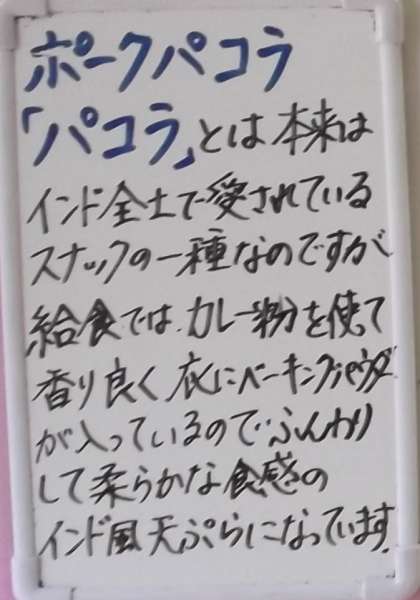 ポークパコラ
「パコラ」とは本来は
インド全土で愛されている
スナックの一種なのですが
給食では、カレー粉を使って
香り良く衣にベーキングパウダー
が入っているので、ふんわり
して柔らかな食感の
インド風天ぷらになっています。